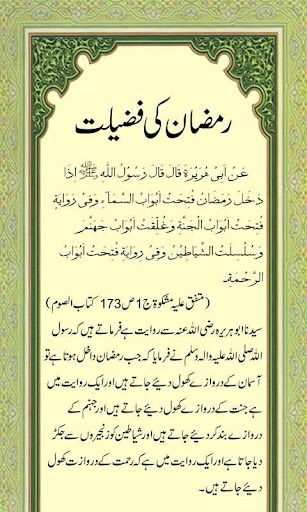 رمضان کی فضیلت
عَنْ اَبِیْ هُرَیْرَةَ قَالَ قَالَ رَسُوْلُ اللّٰهِ ﷺ اِذَا
دَخَلَ رَمَضَانُ فُتِحَتْ اَبْوَابُ السَّمَآءِ وَفِیْ رِوَایَةٍ
فُتِحَتْ اَبْوَابُ الْجَنَّةِ وَغُلِّقَتْ اَبْوَابُ جَهَنَّمَ
وَسُلْسِلَتِ الشَّیَاطِیْنُ وَفِیْ رِوَایَةٍ فُتِحَتْ اَبْوَابُ
الرَّحْمَةِ۔
(متفق علیہ مشکوٰۃ ج1 ص 173 کتاب الصوم)
سیدنا ابو ہریرہ رضی اللہ عنہ سے روایت ہے فرماتے ہیں کہ رسول
اللہ صلی اللہ علیہ والہ وسلم نے فرمایا کہ جب رمضان داخل ہوتا ہے تو
آسمان کے دروازے کھول دیئے جاتے ہیں اور ایک روایت میں
ہے جنت کے دروازے کھول دیئے جاتے ہیں اور جہنم کے
دروازے بند کر دیئے جاتے ہیں اور شیاطین کو زنجیروں سے جکڑ
دیا جاتا ہے اور ایک روایت میں ہے کہ رحمت کے دروازے کھول
دیئے جاتے ہیں۔